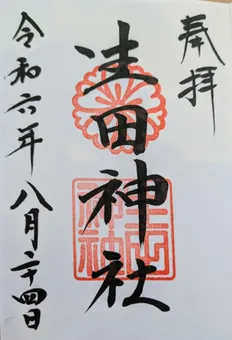 奉拝
生田神社
令和六年八月二十四日